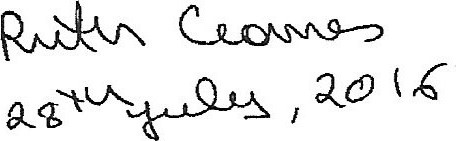 Ruth Ceames
28th July, 2016